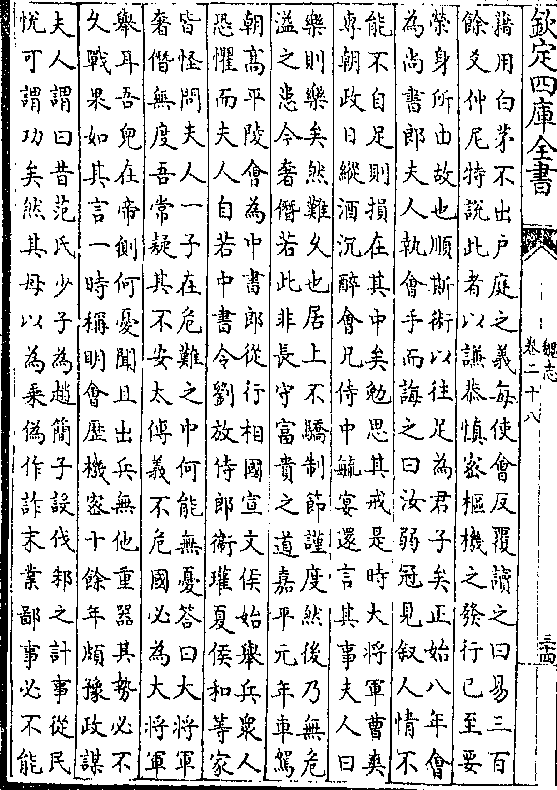 欽定四庫全書
魏志
卷二十八
藉用白茅不出戶庭之義每使會反覆讀之曰易三百
餘爻仲尼特說此者以謙恭慎密樞機之發行已至要
榮身所由故也順斯術以往足為君子矣正始八年會
為尚書郎夫人執會手而誨之曰汝弱冠見叙人情不
能不自足則損在其中矣勉思其戒是時大將軍曹爽
專朝政日縱酒沉醉會兄侍中毓宴還言其事夫人曰
樂則樂矣然難久也居上不驕制節謹度然後乃無危
溢之患今奢僭若此非長守富貴之道嘉平元年車駕
朝高平陵會為中書郎從行相國宣文侯始舉兵衆人
恐懼而夫人自若中書令劉放侍郎衛瓘夏侯和等家
皆怪問夫人一子在危難之中何能無憂答曰大將軍
奢僭無度吾常疑其不安太傅義不危國必為大將軍
舉耳吾兒在帝側何憂聞且出兵無他重器其勢必不
久戰果如其言一時稱明會歷機密十餘年頗豫政謀
夫人謂曰昔范氏少子為趙簡子設伐邾之計事從民
悅可謂功矣然其母以為乘偽作詐末業鄙事必不能